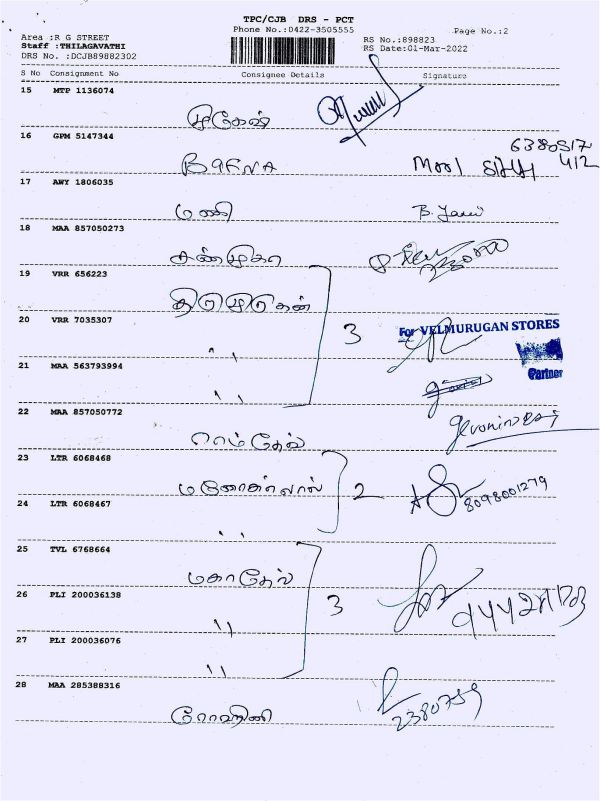 TPC/CJB DRS - PCT
Phone No.:0422-3505555
Page No.:2
Area :R G STREET
RS No.:898823
Staff :THILAGAVATHI
RS Date:01-Mar-2022
DRS No. :DCJB89882302
S No Consignment No Consignee Details Signature
15 MTP 1136074
முகேஷ்
16 GPM 5147344
6380517
412
17 AWY 1806035
மணி
18 MAA 857050273
சண்முகா
19 VRR 656223
திருமுருகன்
20 VRR 7035307
3
For VELMURUGAN STORES
〃
Partner
21 MAA 563793994
〃
22 MAA 857050772
ராம்தேவ்
23 LTR 6068468
2
8098001279
24 LTR 6068467
〃
25 TVL 6768664
மகாதேவ்
26 PLI 200036138
3
〃
27 PLI 200036076
〃
28 MAA 285388316
2380759
ரோஹிணி